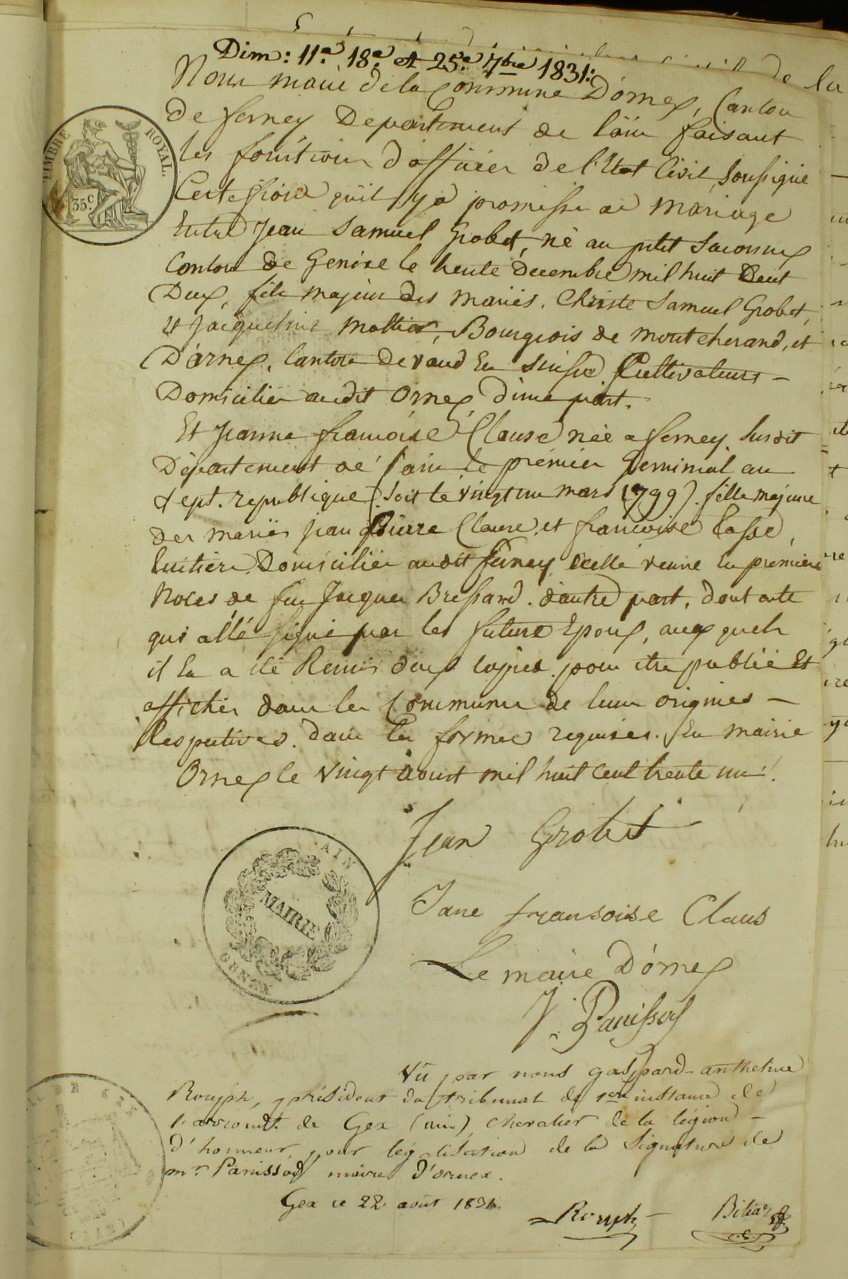 Dim: 11.e 18.e et 25.e 7bre 1831.
Nous maire de la Commune D'ornex, Canton
de ferney Département de l'ain faisant
les fonctions d'officier de l'Etat Civil, Soussigné
Certifions qu'il y a promesse de Mariage
Entre Jean Samuel Grobet, né au petit Saconnex
Canton de Genève le trente Decembre mil huit Cent
Deux, fils majeur des mariés. Samuel Grobet,
et Jacqueline Bourgeois de montcherand, et
D'arnex, Canton de vaud En Suisse, Cultivateurs
Domiciliés audit Ornex D'une part.
Et Jeanne françoise Clause née a ferney Susdit
Département de l'ain le prémier Germinal an
Sept. republique (Soit le vingt un mars 1799). fille majeure
des mariés jean Pierre Clause, et francoise
Domiciliés audit ferney, icelle veuve en première
Noces de feu Jacques Bressand. d'autre part, dont acte
qui a été Signé par les futurs Epoux, auxquels
il En a été Remis deux copies pour être publié Et
affichés dans les Communes de leurs origines
Respectives. dans les formes requises. En mairie
Ornex le vingt aoust mil huit Cent trente un.
Jean Grobet
Jane françoise Claus
Le maire D'ornex
Panissod
Vû par nous gaspard-anthelme
Rouph, président du tribunal de 1ere instance de
l'arrondt. de Gex (ain) chevalier de la légion
d'honneur, pour légalisation de la Signature de
mr. Panissod maire d'ornex.
Gex ce 22 août 1831.
Rouph
TIMBRE ROYAL.
35c
AIN
MAIRIE
ORNEX